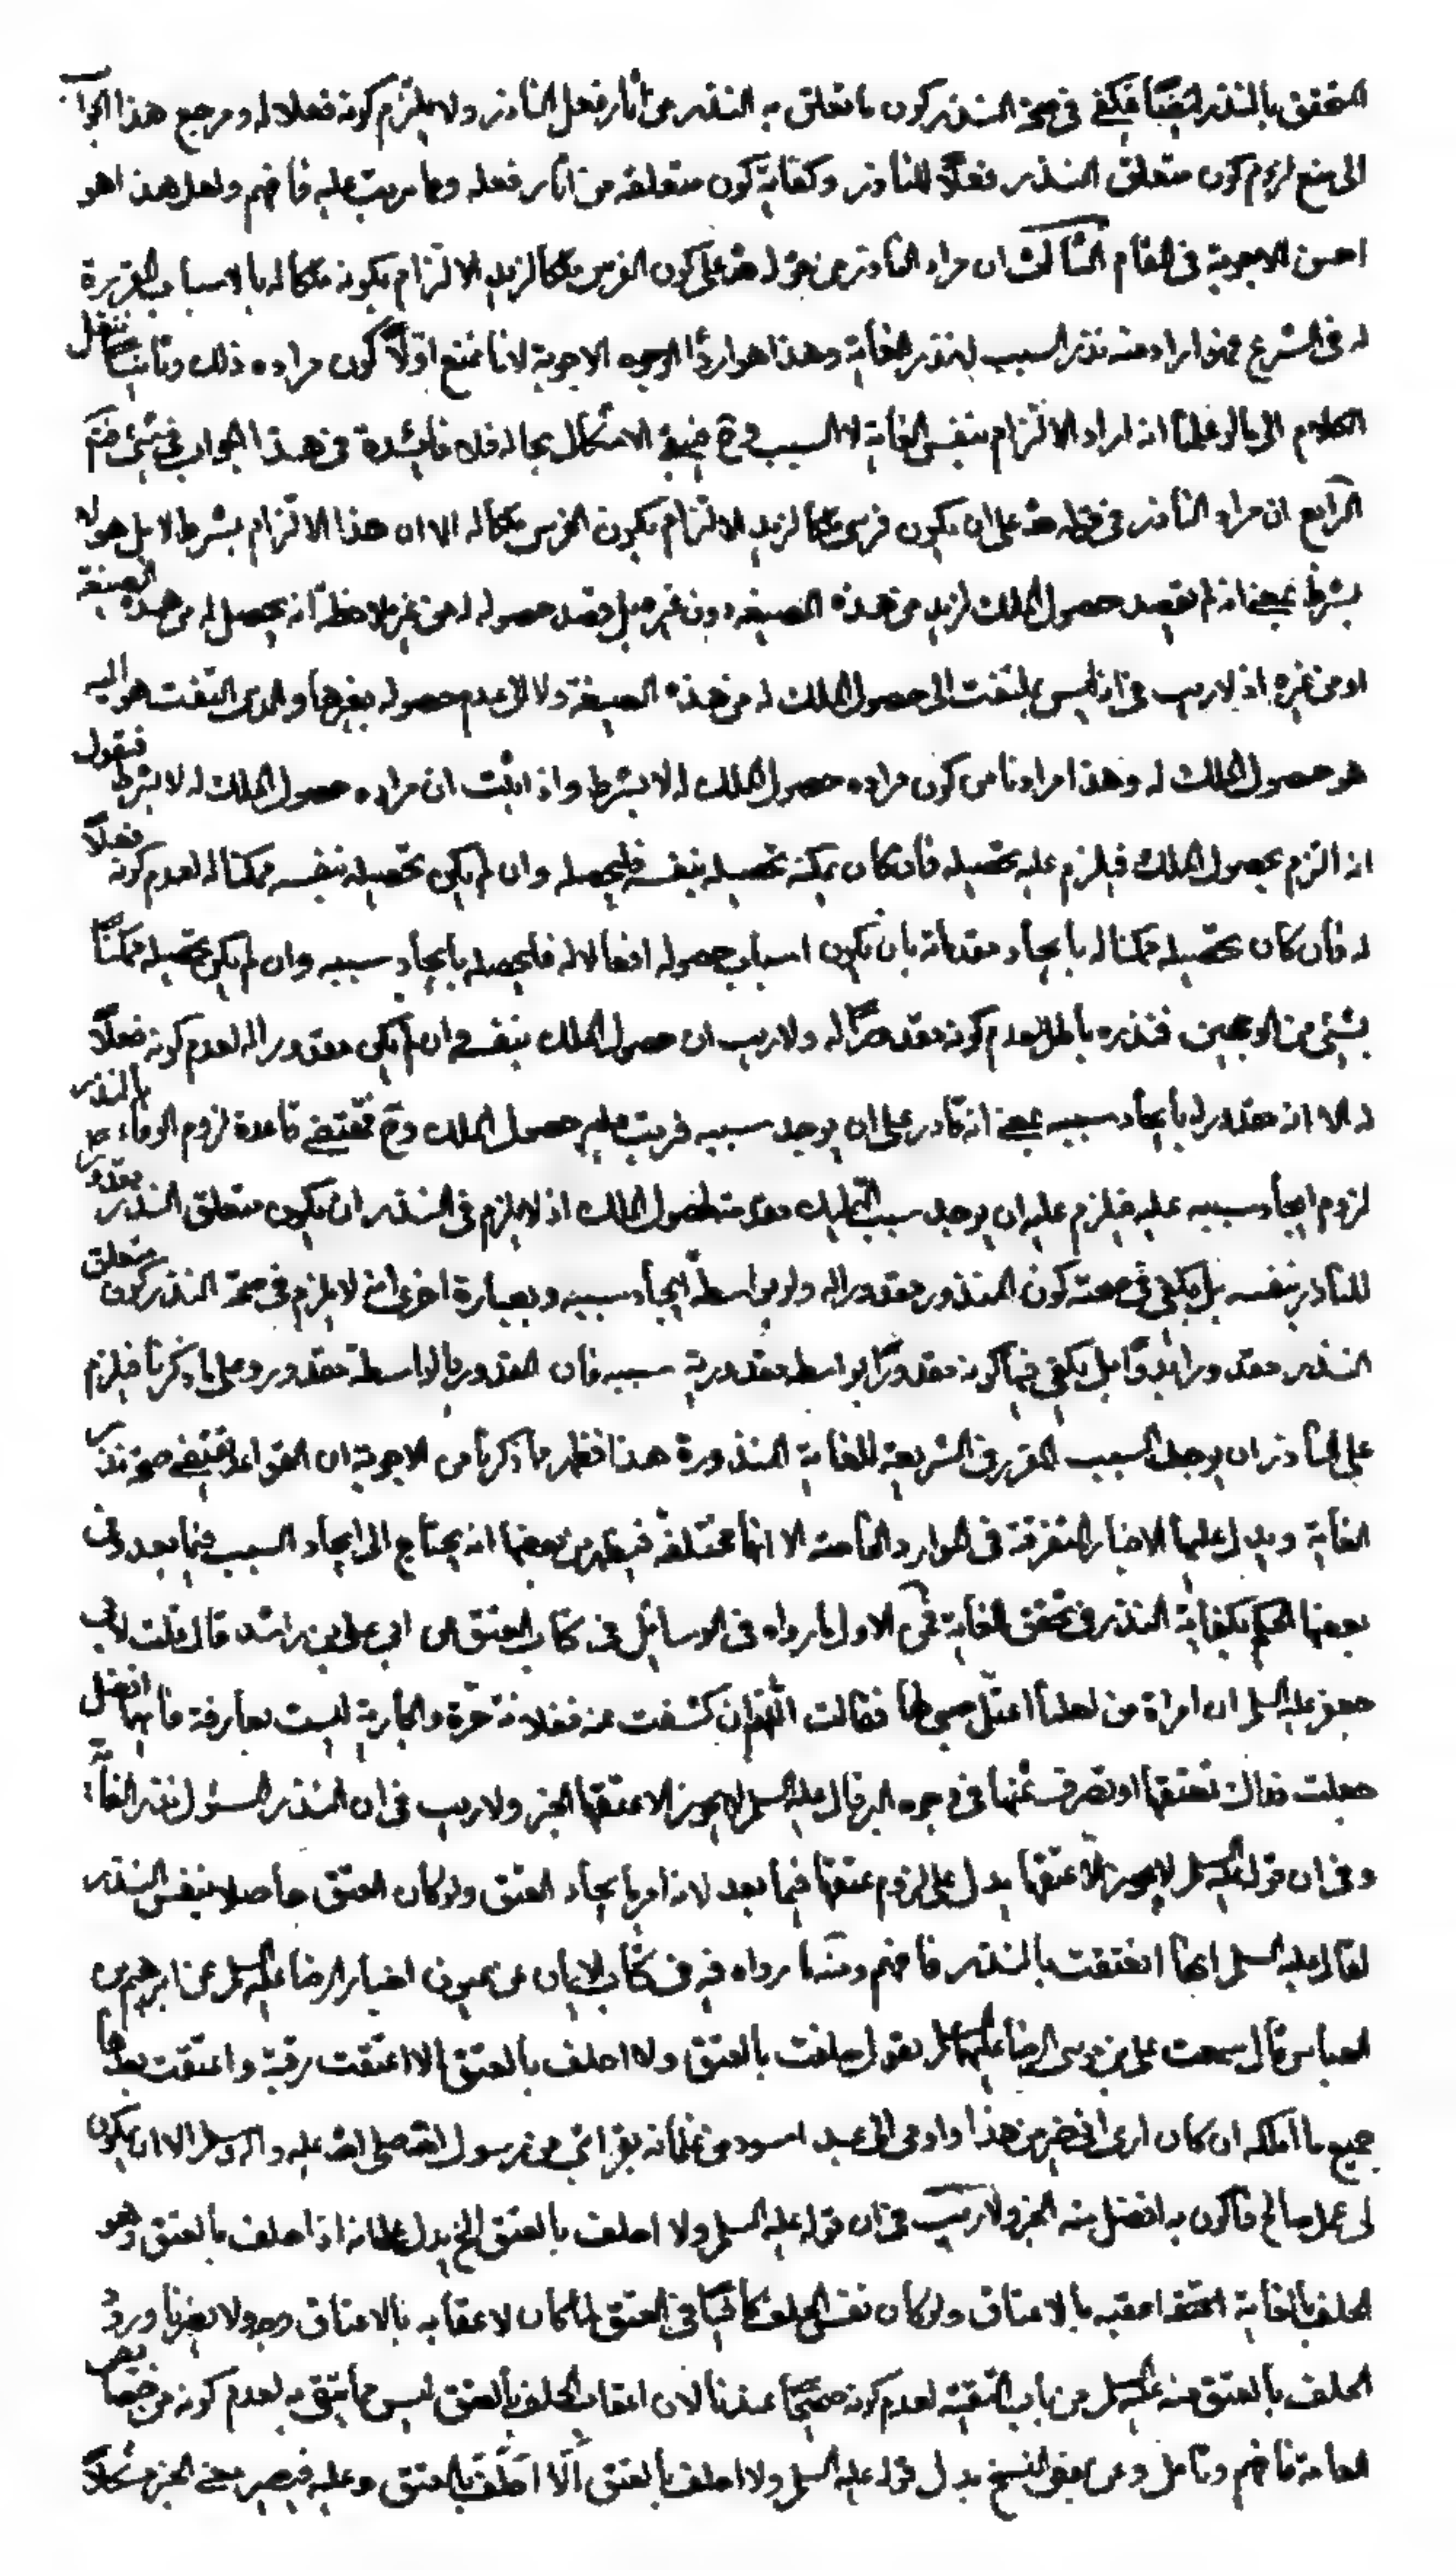 المتحقق بالنذر ايضا فيكفى فى صحة النذر كون ما تعلق به النذر من اثار فعل الناذر ولا يلزم كونه فعلا له ومرجع هذا الجواب
الى منع لزوم كون متعلق النذر فعلا للناذر وكفاية كون متعلقه من اثار فعله وما يترتب عليه فافهم ولعل هذا هو
احسن الاجوبة فى المقام الثالث ان مراد الناذر من قوله لله على كون الفرس ملكا لزيد الالتزام بكونه ملكا له بالاسباب المقررة
له فى الشرع فهو اراد منه نذر السبب لا نذر الغاية وهذا هو اردأ الوجوه الاجوبة لانا نمنع اولا كون مراده ذلك وثانيا ننقل
الكلام الى ما لو علمنا انه اراد الالتزام بنفس الغاية لا السبب وح فيبقى الاشكال بحاله فلا فائدة فى هذا الجواب فى شىء فتم
الرابع ان مراد الناذر فى قوله لله على ان يكون فرسى ملكا لزيد الالتزام بكون الفرس ملكا له الا ان هذا الالتزام بشرط لا بل هو لا
بشرط بمعنى انه لم يقصد حصول الملك لزيد من هذه الصيغه دون غيره بل قصد حصوله له من غير ملاحظة انه يحصل له من هذه الصيغة
او من غيره اذ لا ريب فى انه ليس بملتفت الى حصول الملك له من هذه الصيغة ولا الى عدم حصوله بغيرها والذى التفت هو اليه
هو حصول الملك له وهذا مرادنا من كون مراده حصول الملك له لا بشرط واذا ثبت ان مراده حصول الملك له لا بشرط فنقول
انه التزم بحصول الملك فيلزم عليه تحصيله فان كان يمكنه تحصيله بنفسه فليحصله وان لم يكن تحصيله بنفسه ممكنا له لعدم كونه فعلا
له فان كان تحصيله ممكنا له بايجاد مقدماته بان يكون اسباب حصوله افعالا له فليحصله بايجاد سببه وان لم يكن تحصيله ممكنا
بشىء من الوجهين فنذره باطل لعدم كونه مقدورا له ولا ريب ان حصول الملك بنفسه وان لم يكن مقدورا له لعدم كونه فعلا
له الا انه مقدور له بايجاد سببه بمعنى انه قادر على ان يوجد سببه فيترتب عليه حصول الملك وح فمقتضى قاعدة لزوم الوفاء بالنذر هو
لزوم ايجاد سببه عليه فيلزم عليه ان يوجد سبب التمليك مقدمة لحصول الملك اذ لا يلزم فى النذر ان يكون متعلق النذر مقدورا
للناذر بنفسه بل يكفى فى صحته كون المنذور مقدورا له ولو بواسطة ايجاد سببه وبعبارة اخرى انه لا يلزم فى صحة النذر كون متعلق
النذر مقدورا بدوا بل يكفى فيها كونه مقدورا بواسطة مقدورية سببه فان المقدور بالواسطة مقدور وعلى ما ذكرنا فيلزم
على الناذر ان يوجد السبب المقرر فى الشريعة للغاية المنذورة هذا فظهر ما ذكرنا من الاجوبة ان القواعد تقتضى صحة نذر
الغاية ويدل عليها الاخبار المتفرقة فى الموارد الخاصة الا انها مختلفة فيظهر من بعضها انه يحتاج الى ايجاد السبب فيما بعد وفى
بعضها الحكم بكفاية النذر فى تحقق الغاية فمن الاول ما رواه فى الوسائل فى كتاب العتق عن ابى على بن راشد قال قلت لابى
جعفر عليه السلم ان امراة من اهلنا اعتل صبى لها فقالت اللهم ان كشفت عنه ففلانة حرة والجارية ليست بعارفة فايهما افضل
جعلت فداك تعتقها او تصرف ثمنها فى وجوه البر قال عليه السلم لا يجوز الا عتقها الخبر ولا ريب فى ان النذر المسئول نذر الغاية
وفى ان قوله عليه السلم لا يجوز الا عتقها يدل على لزوم عتقها فيما بعد لانه امر بايجاد العتق ولو كان العتق حاصلا بنفس النذر
لقال عليه السلم انها انعتقت بالنذر فافهم ومنها ما رواه فيه فى كتاب الايمان عن عيون اخبار الرضا عليه السلم عن ابرهيم بن
العباس قال سمعت على بن موسى الرضا عليهما السلم يقول حلفت بالعتق ولا احلف بالعتق الا اعتقت رقبة واعتقت بعدها
جميع ما املكه ان كان ارى انى خير من هذا واومى الى عبد اسود من غلمانه بقرابتى من رسول الله صلى الله عليه واله وسلم الا ان يكون
لى عمل صالح فاكون به افضل منه الخبر ولا ريب فى ان قوله عليه السلم ولا احلف بالعتق الخ يدل على انه اذا حلف بالعتق وهو
الحلف بالغاية اعقبه بالاعتاق ولو كان نفس الحلف كافيا فى العتق لما كان لاعقابه بالاعتاق وجه ولا يضرنا ورود
الحلف بالعتق منه عليه السلم من باب التقية لعدم كونه صحيحا عندنا لان اعقاب الحلف بالعتق ليس مما يتقى به لعدم كونه من مذهب
العامة فافهم وتامل وعن بعض النسخ بدل قوله عليه السلم ولا احلف بالعتق الا احلف بالعتق وعليه فيصير معنى الخبر مشكلا